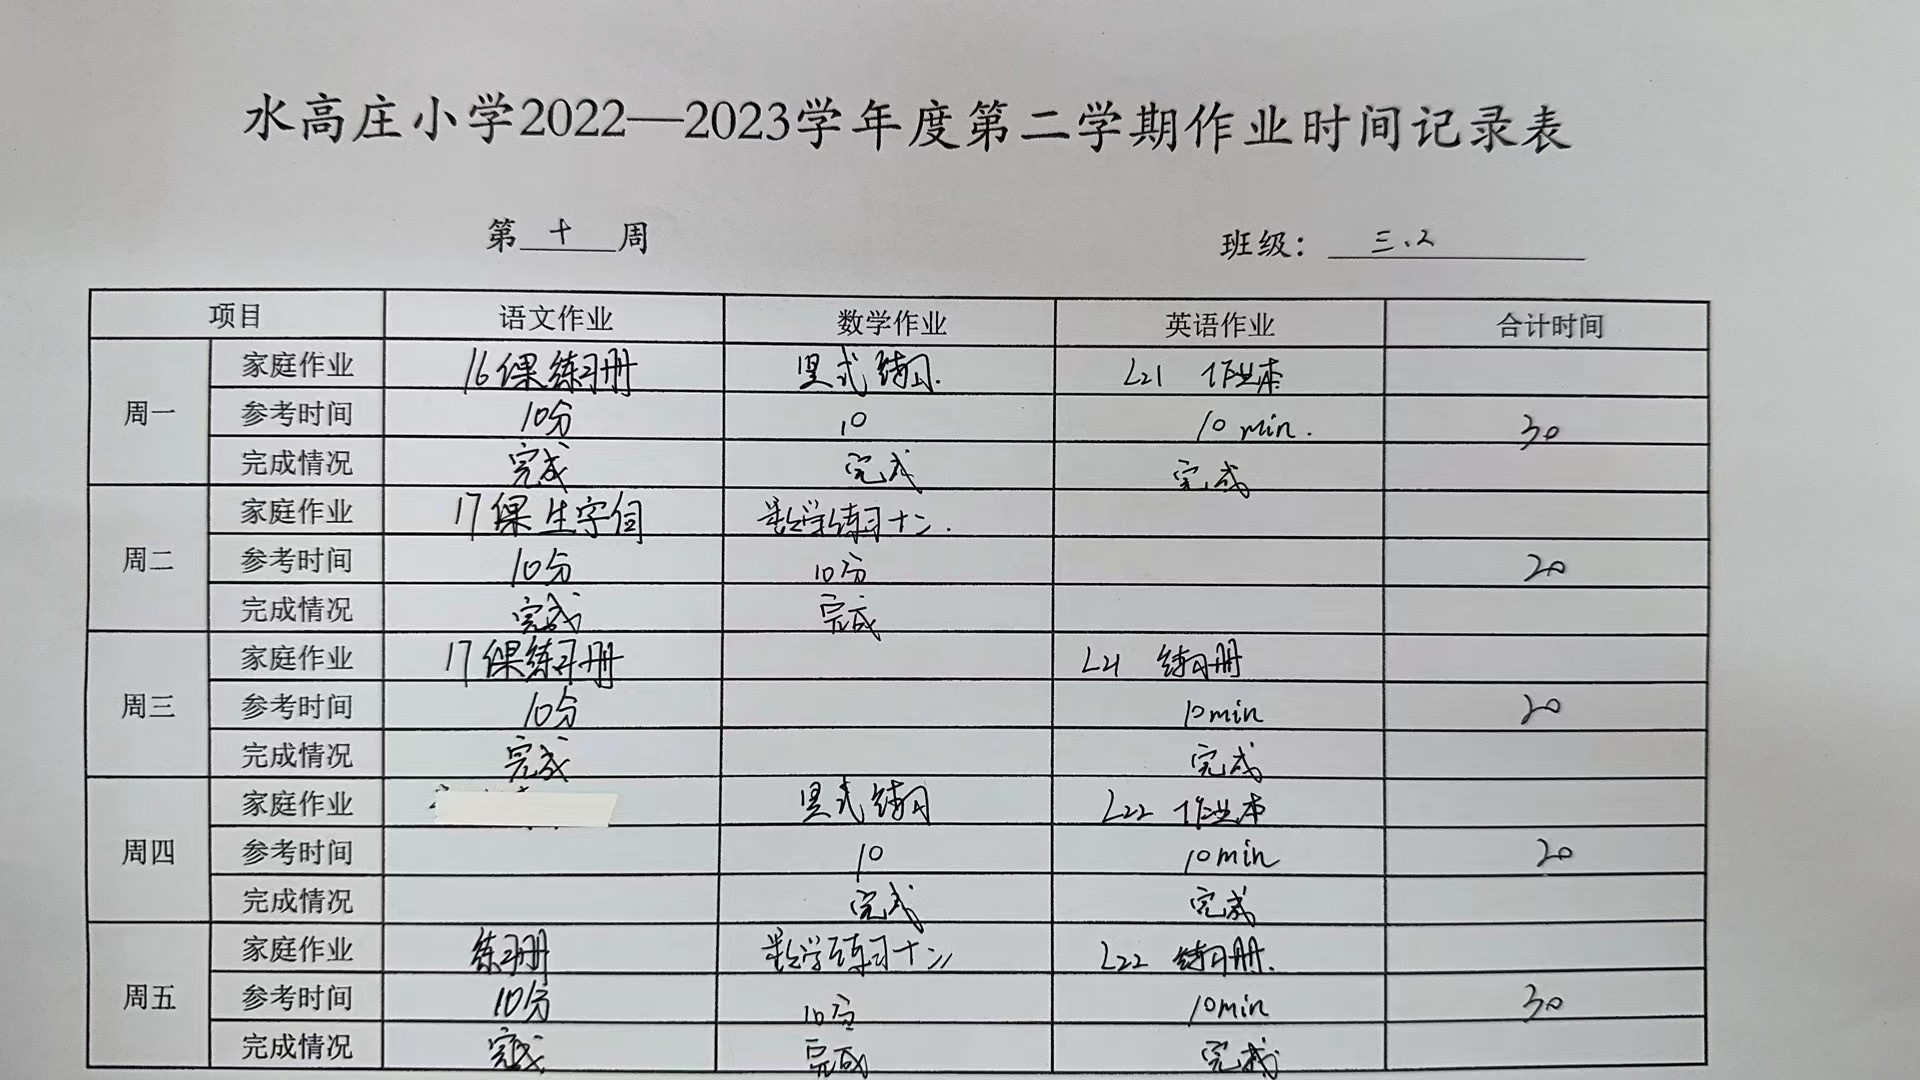 水高庄小学2022—2023学年度第二学期作业时间记录表
第 十 周 班级： 三.2
项目 语文作业 数学作业 英语作业 合计时间
周一 家庭作业 16课练习册 竖式练习. L21 作业本
参考时间 10分 10 10 min. 30
完成情况 完成 完成 完成
周二 家庭作业 17课生字词 数学练习十二.
参考时间 10分 10分 20
完成情况 完成 完成
周三 家庭作业 17课练习册 L21 练习册
参考时间 10分 10min 20
完成情况 完成 完成
周四 家庭作业 竖式练习 L22 作业本
参考时间 10 10min 20
完成情况 完成 完成
周五 家庭作业 练习册 数学练习十二 L22 练习册.
参考时间 10分 10分 10min 30
完成情况 完成 完成 完成